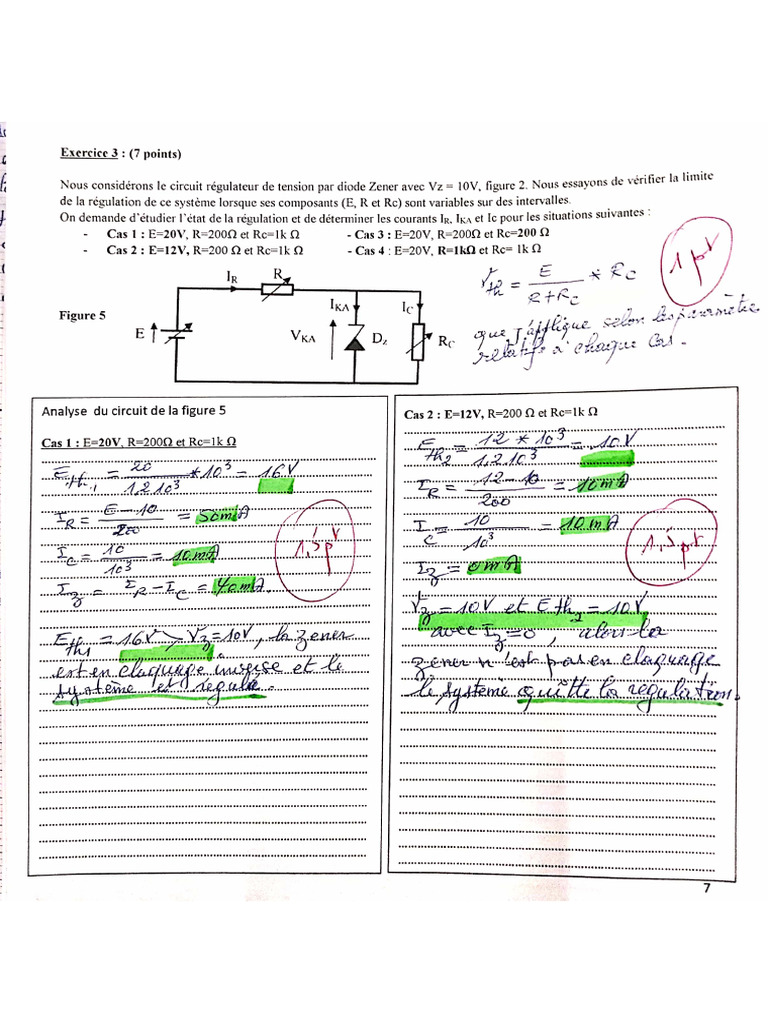 Exercice 3 : (7 points)
Nous considérons le circuit régulateur de tension par diode Zener avec Vz = 10V, figure 2. Nous essayons de vérifier la limite
de la régulation de ce système lorsque ses composants (E, R et Rc) sont variables sur des intervalles.
On demande d'étudier l'état de la régulation et de déterminer les courants IR, IKA et Ic pour les situations suivantes :
- Cas 1 : E=20V, R=200Ω et Rc=1k Ω - Cas 3 : E=20V, R=200Ω et Rc=200 Ω
- Cas 2 : E=12V, R=200 Ω et Rc=1k Ω - Cas 4 : E=20V, R=1kΩ et Rc= 1k Ω
1 pt
Vth = E / (R+RC) * RC
que j'applique selon les paramètres
relatifs à chaque Cas.
Figure 5
IR R
IKA IC
E VKA Dz RC
Analyse du circuit de la figure 5
Cas 1 : E=20V, R=200Ω et Rc=1k Ω
Eth1 = 20 / 1,2 10³ * 10³ = 16V
IR = E - 10 / 200 = 50mA
IC = 10 / 10³ = 10mA
Iz = IR - IC = 40mA.
1,5 pt
Eth1 = 16V > Vz = 10V, la zener
est en claquage inverse et le
système est régulé.
Cas 2 : E=12V, R=200 Ω et Rc=1k Ω
Eth2 = 12 * 10³ / 1,2.10³ = 10V
IR = 12 - 10 / 200 = 10mA
IC = 10 / 10³ = 10mA
Iz = 0mA
1,5 pt
Vz = 10V et Eth2 = 10V
avec Iz = 0, alors la
zéner n'est pas en claquage
le système quitte la régulation.
7